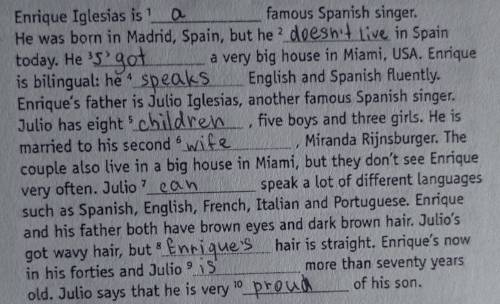 Enrique Iglesias is ¹ a famous Spanish singer.
He was born in Madrid, Spain, but he ² doesn't live in Spain
today. He ³ 's' got a very big house in Miami, USA. Enrique
is bilingual: he ⁴ speaks English and Spanish fluently.
Enrique's father is Julio Iglesias, another famous Spanish singer.
Julio has eight ⁵ children, five boys and three girls. He is
married to his second ⁶ wife, Miranda Rijnsburger. The
couple also live in a big house in Miami, but they don't see Enrique
very often. Julio ⁷ can speak a lot of different languages
such as Spanish, English, French, Italian and Portuguese. Enrique
and his father both have brown eyes and dark brown hair. Julio's
got wavy hair, but ⁸ Enrique's hair is straight. Enrique's now
in his forties and Julio ⁹ is more than seventy years
old. Julio says that he is very ¹⁰ proud of his son.